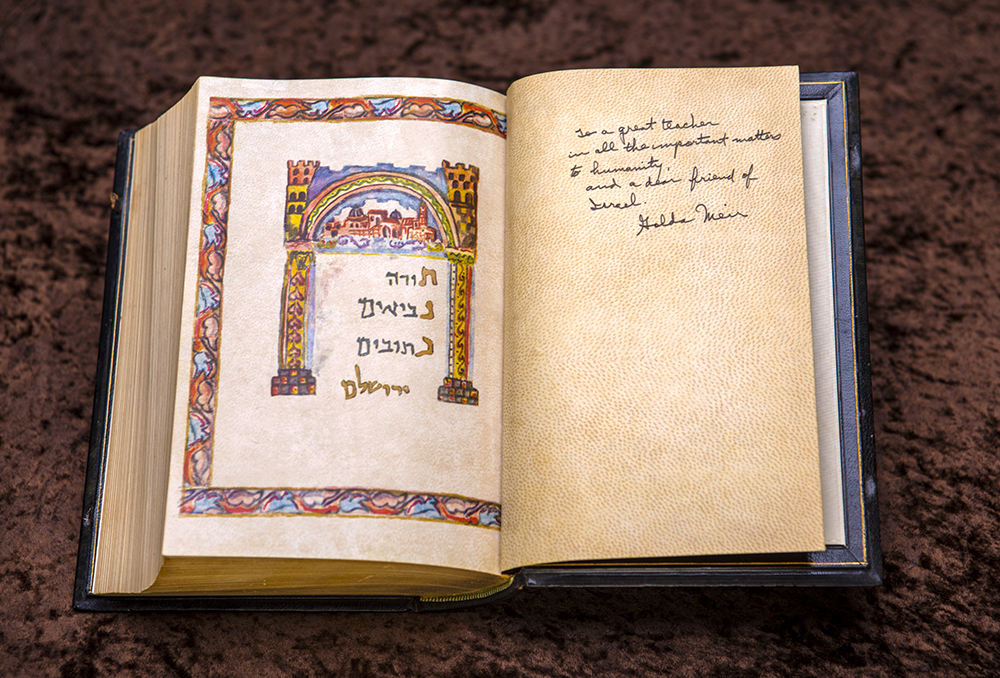 תורה
נביאים
כתובים
ירושלם
To a great teacher
in all the important matters
to humanity,
and a dear friend of
Israel.
Golda Meir